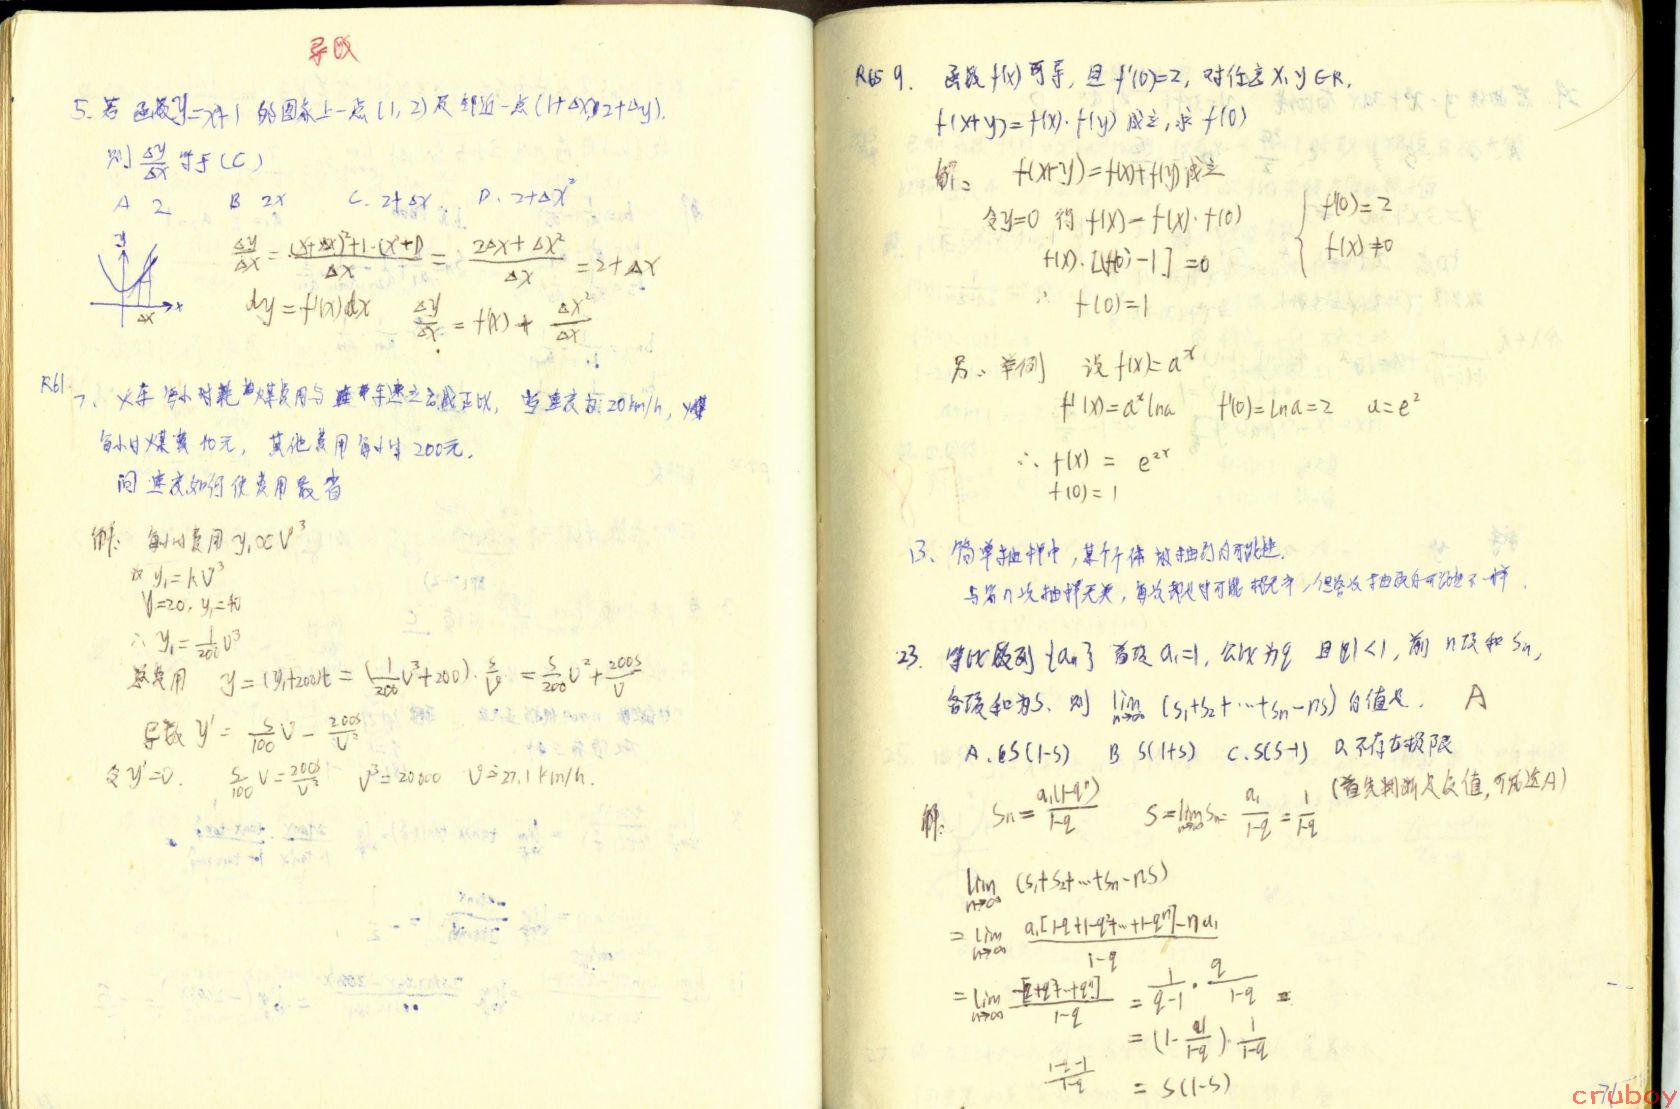 导数
5. 若函数y=x²+1 的图象上一点(1,2)及邻近一点(1+Δx,2+Δy).
则 Δy/Δx 等于(C)
A 2 B 2x C. 2+Δx D. 2+Δx²
y
x
Δx
Δy/Δx = ((x+Δx)²+1-(x²+1))/Δx = (2Δx+Δx²)/Δx = 2+Δx
dy=f'(x)dx Δy/Δx = f'(x) + Δx²/Δx
R61
7、火车每小时耗煤费用与车速之立成正比, 当速度为20km/h, 煤
每小时煤费40元, 其他费用每小时200元.
问速度如何使费用最省
解: 每小时费用 y₁∝V³
设 y₁=kV³
V=20, y₁=40
∴ y₁=1/200 V³
总费用 y=(y₁+200)t = (1/200 V³+200)·S/V = S/200 V²+200S/V
导数 y' = S/100 V - 200S/V²
令y'=0. S/100 V = 200S/V² V³=20000 V≐27.1km/h.
R65 9. 函数f(x)可导, 且f'(0)=2, 对任意x,y∈R,
f(x+y)=f(x)·f(y) 成立, 求 f(0)
解: f(x+y)=f(x)+f(y)成立
令y=0 得 f(x)=f(x)·f(0)
f'(0)=2
f(x)≠0
f(x)·[f(0)-1]=0
∴ f(0)=1
另: 举例 设 f(x)=aˣ
f'(x)=aˣlna f'(0)=lna=2 a=e²
∴ f(x) = e²ˣ
f(0)=1
13、简单抽样中, 某个个体被抽到的可能性.
与第n次抽样无关, 每次都是等可能概率, 但各次抽取的可能性不一样.
23. 等比数列{aₙ} 首项a₁=1, 公比为q 且|q|<1, 前n项和Sₙ,
各项和为S. 则 lim n→∞ (S₁+S₂+…+Sₙ-nS) 的值是. A
A. S(1-S) B S(1+S) C. S(S-1) D.不存在极限
(首先判断是负值, 可选A)
解: Sₙ=a₁(1-qⁿ)/(1-q) S=lim n→∞ Sₙ=a₁/(1-q)=1/(1-q)
lim n→∞ (S₁+S₂+…+Sₙ-nS)
= lim n→∞ (a₁[1-q+1-q²+…+1-qⁿ]-na₁)/(1-q)
= lim n→∞ -[q+q²+…+qⁿ]/(1-q) = 1/(q-1) · q/(1-q) =
= (1-1/(1-q))·1/(1-q)
= S(1-S)
71
cruboy